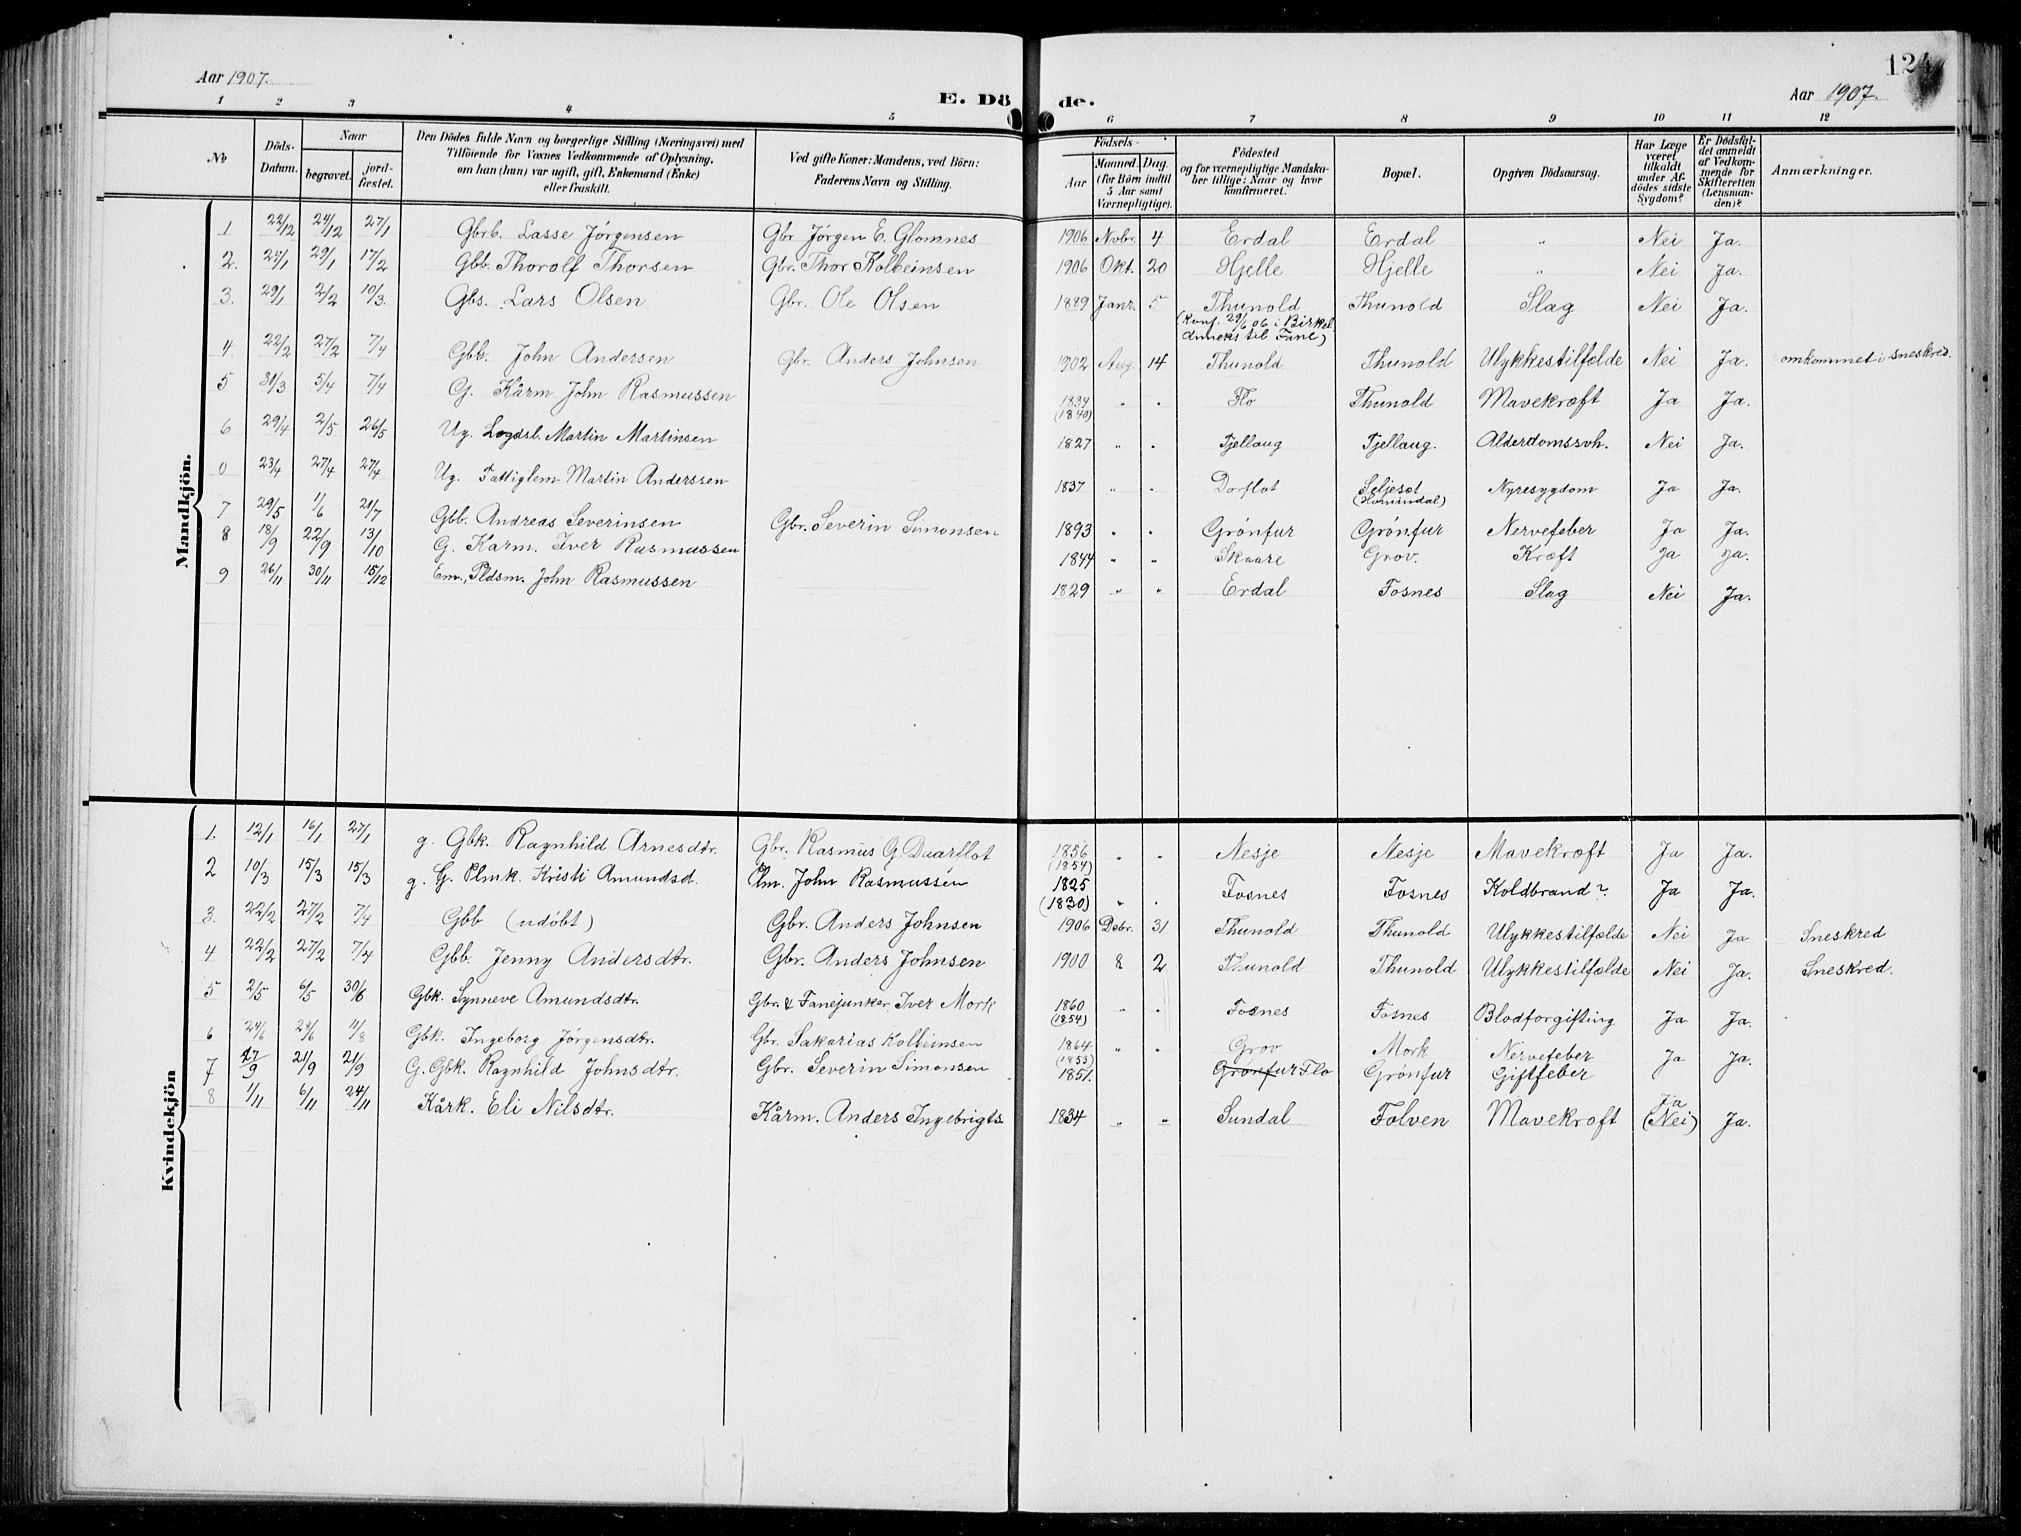 Aar 1907.
E. Döde.
124
Aar 1907.
1 2 3 4 5 6 7 8 9 10 11 12
No
Döds-Datum.
Naar
begravet.
jordfæstet.
Den Dödes fulde Navn og borgerlige Stilling (Næringsvei) med
Tilföiende for Voxnes Vedkommende af Oplysning,
om han (hun) var ugift, gift, Enkemand (Enke)
eller fraskilt.
Ved gifte Koner: Mandens, ved Börn:
Faderens Navn og Stilling.
Födsels-
Aar
Maaned. Dag.
(for Börn indtil
5 Aar samt
Værnepligtige).
Födested
og for værnepligtige Mandskaber tillige: Naar og hvor
konfirmeret.
Bopæl.
Opgiven Dödsaarsag.
Har Læge
været
tilkaldt
under Afdödes sidste
Sygdom?
Er Dödsfaldet anmeldt
af Vedkommende for
Skifteretten
(Lensmanden)?
Anmærkninger.
Mandkjön.
1 22/12 24/12 27/1 Gbrb. Lasse Jørgensen Gbr Jørgen E. Glomnes 1906 Novbr. 4 Erdal Erdal " Nei Ja.
2. 24/1 29/1 17/2 Gbb. Thorolf Thorsen Gbr. Thor Kolbeinsen 1906 Okt. 20 Hjelle Hjelle " Nei Ja.
3. 29/1 2/2 10/3. Gbs. Lars Olsen Gbr. Ole Olsen 1889 Janr. 5 Thunold Thunold Slag Nei Ja.
(Konf. 29/6 06 i Birkel.
anneks til Fane)
4 22/2 27/2 7/4 Gbb. John Andersen Gbr. Anders Johnsen 1902 Aug. 14 Thunold Thunold Ulykkestilfælde Nei Ja. omkommet i sneskred.
5 31/3 5/4 7/4 G. Kårm John Rasmussen 1834 (1840) " " Flo Thunold Mavekræft Ja Ja.
6 29/4 2/5 26/5 Ug. Lægdsl. Martin Martinsen 1827 " " Fjellaug Fjellaug. Alderdomssvh. Nei Ja.
0 23/4 27/4 27/4 Ug. Fattiglem Martin Anderssen 1837 " " Dorflot Seljeset (Hornindal) Nyresygdom Ja Ja.
7 29/5 1/6 21/7 Gbb. Andreas Severinsen Gbr. Severin Simonsen 1893 " " Grønfur Grønfur Nervefeber Ja Ja.
8 18/9 22/9 13/10 G. Karm. Iver Rasmussen 1844 " " Skaare Grov. Kræft Ja Ja.
9 26/11 30/11 15/12 Em., Pldsm. John Rasmussen 1829 " " Erdal Fosnes Slag Nei Ja.
Kvindekjön
1. 12/1 16/1 27/1 g. Gbk. Ragnhild Arnesdtr. Gbr. Rasmus G. Duarflot 1856 (1854) " " Nesje Nesje Mavekræft Ja Ja.
2 10/3 15/3 15/3 g. G. Plmk. Kristi Amundsd. Plm. John Rasmussen 1825 (1830) " " Fosnes Fosnes Koldbrand? Ja Ja.
3. 22/2 27/2 7/4 Gbb (udøbt) Gbr. Anders Johnsen 1906 Debr. 31 Thunold Thunold Ulykkestilfælde Nei Ja Sneskred
4 22/2 27/2 7/4 Gbb. Jenny Andersdtr. Gbr. Anders Johnsen 1900 8 2 Thunold Thunold Ulykkestilfælde Nei Ja. Sneskred.
5 2/5 6/5 30/6 Gbk. Synneve Amundsdtr. Gbr. & Fanejunker Iver Mork 1860 (1854) " " Fosnes Fosnes Blodforgifting Ja Ja.
6 24/6 29/6 11/8 Gbk. Ingeborg Jørgensdtr. Gbr. Sakarias Kolbeinsen 1864 (1853) " " Grov Mork Nervefeber Ja Ja.
7 17/9 21/9 21/9 G. Gbk. Ragnhild Johnsdtr. Gbr. Severin Simonsen 1851. Grønfur Flo Grønfur Giftfeber
8 1/11 6/11 24/11 Kårk. Eli Nilsdtr. Kårm. Anders Ingebrigts. 1834 " " Sundal Folven Mavekræft Ja (Nei) Ja.